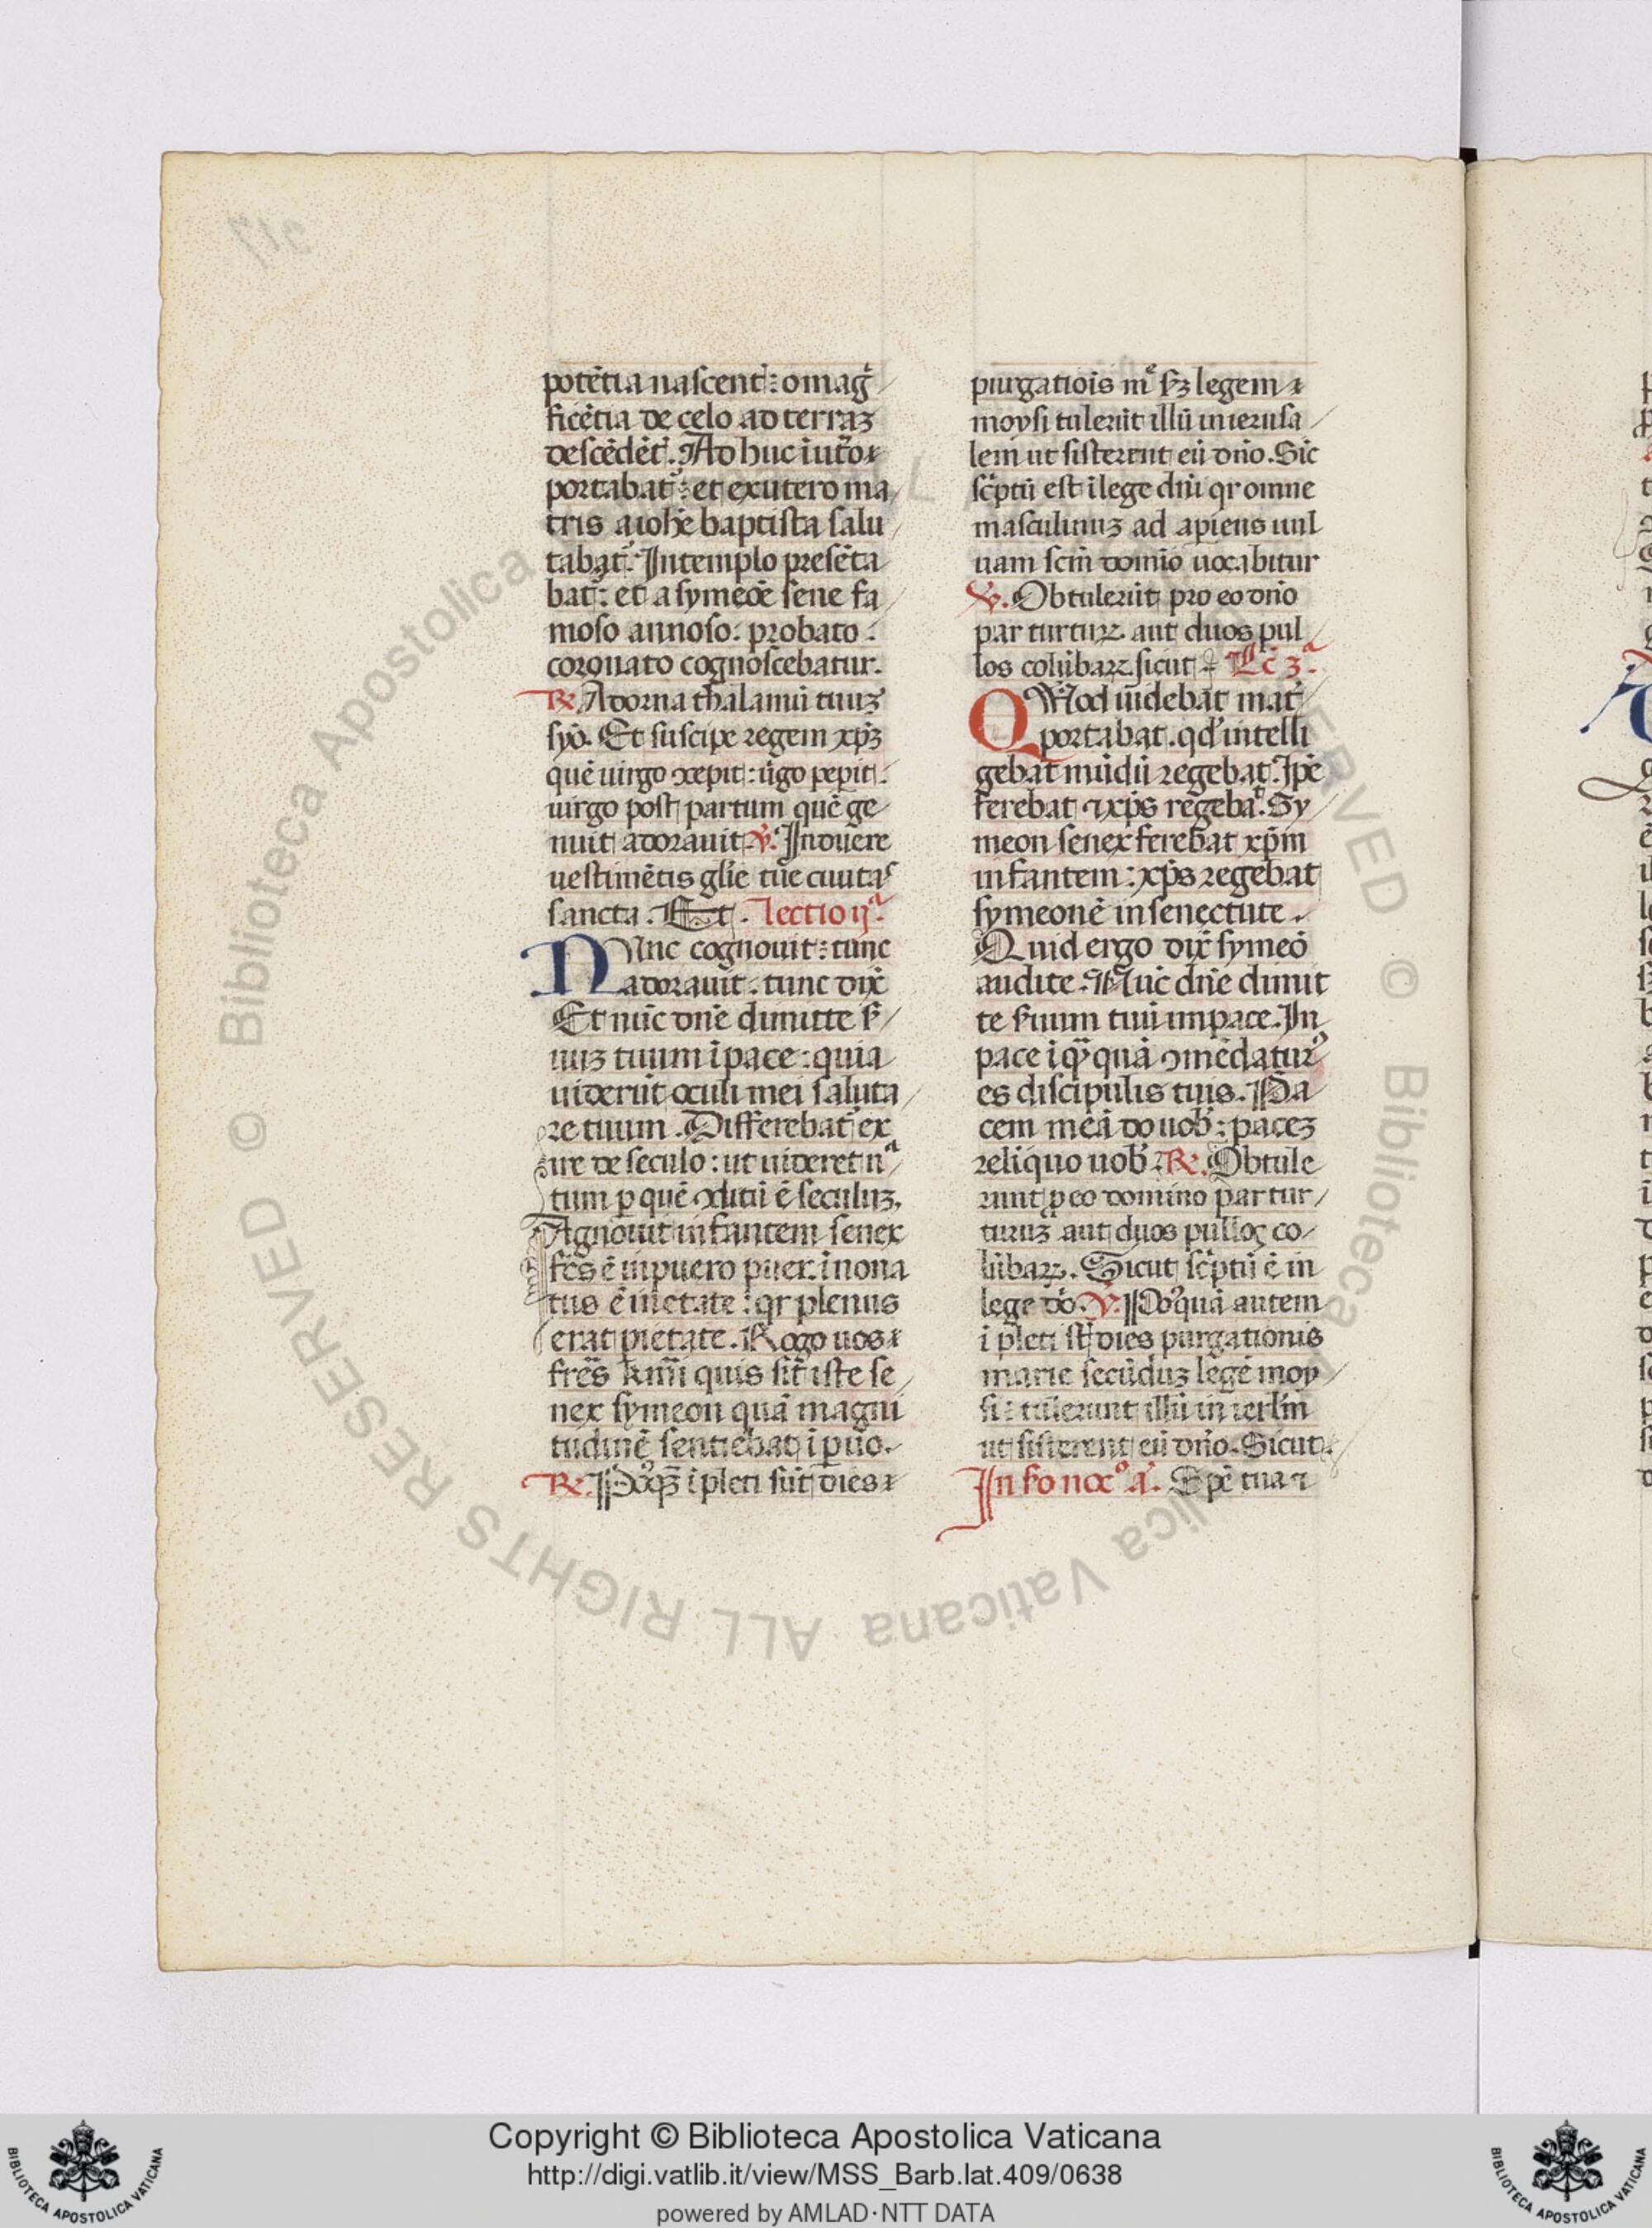 potētia nascent᷑: o mag͛
ficētia de celo ad terraꝫ
descēdēt᷑. Ad huc ī utō
portabat᷑: et ex utero ma
tris a iohē baptista salu
tabat᷑. In templo presēta
bat᷑: et a symeōe sene fa
moso annoso: probato:
coronato cognoscebatur.
℟. Adorna thalamū tuuꝫ
syō. Et suscipe regem xp̄ꝫ
quē uirgo ꝯcepit: ūgo peperit:
uirgo post partum quē ge
nuit adorauit. ℣. Induere
uestimētis glīe tue ciuitas
sancta. Et. lectio ijᵃ.
Nunc cognouit: tunc
adorauit. tunc dix̄
Et nūc dn̄e dimitte ẜ
uuꝫ tuum ī pace: quia
uiderūt oculi mei saluta
re tuum. Differebat᷑ ex
ire de seculo: ut uideret nᵃ
tum p̱ quē ꝯditū ē seculuꝫ.
Agnouit infantem senex
fcs̄ ē in puero puer. īnoua
tus ē in etate: qr plenus
erat pietate. Rogo uos
frēs kmī quis sit iste se
nex symeon quā magni
tudinē sentiebat ī pūo.
℟. Postꝗ̄ īpleti sūt dies
purgatiois mͤ ẜꝫ legem
moysi tulerūt illū in ierusa
lem ut sisterent eū dn̄o. Sic̄
sc̄ptū est ī lege dn̄i qr omne
masculinuꝫ ad apiens uul
uam scm̄ domīo uocabitur
℣. Obtulerūt pro eo dn̄o
par turturꝝ aut duos pul
los colūbaꝝ. sicut. Lc̄ 3ᵃ.
Quod uidebat mat͛
portabat. qd̓ intelli
gebat mūdū regebat. Ipē
ferebat ⁊ xp̄s regebaᵗ. Sy
meon senex ferebat xp̄m
infantem: xp̄s regebat
symeonē in senectute.
Quid ergo dix̄ symeō
audite. Nūc dn̄e dimit
te ẜuum tuū in pace. In
pace ī quā ꝯmēdatur᷒
es discipulis tuis. Pa
cem meā do uob̓: paceꝫ
reliquo uob̓. ℟. Obtule
runt ꝓ eo domino par tur
turuꝫ aut duos pullos co
lūbaꝝ. Sicut sc̄ptū ē in
lege dō. ℣. Postquā autem
īpleti st̄ dies purgationis
marie secūduꝫ legē moy
si: tulerunt illū in ierl̄m
ut sisterent eū dn̄o. Sicut.
In ẜo noc᷒ a᷑. Spē tua ⁊
Copyright © Biblioteca Apostolica Vaticana
http://digi.vatlib.it/view/MSS_Barb.lat.409/0638
powered by AMLAD·NTT DATA